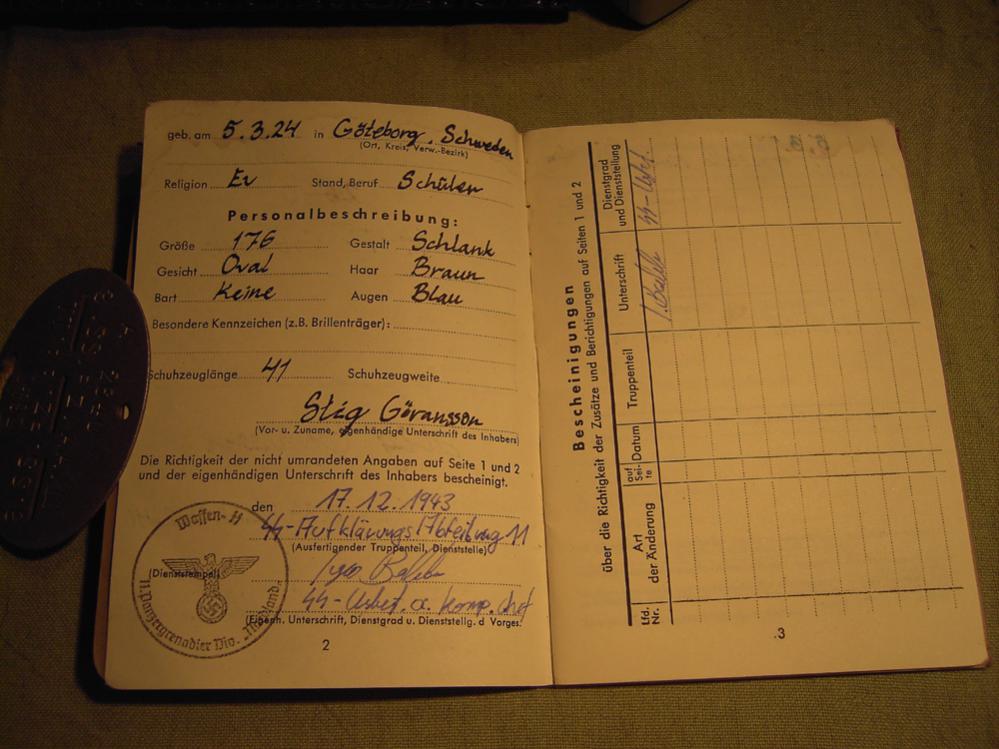 geb. am 5.3.24 in Göteborg, Schweden
(Ort, Kreis, Verw.-Bezirk)
Religion Ev Stand, Beruf Schüler
Personalbeschreibung:
Größe 176 Gestalt Schlank
Gesicht Oval Haar Braun
Bart Keine Augen Blau
Besondere Kennzeichen (z.B. Brillenträger):
Schuhzeuglänge 41 Schuhzeugweite
Stig Göransson
(Vor- u. Zuname, eigenhändige Unterschrift des Inhabers)
Die Richtigkeit der nicht umrandeten Angaben auf Seite 1 und 2
und der eigenhändigen Unterschrift des Inhabers bescheinigt.
den 17.12.1943
SS-Aufklärungs Abteilung 11
(Ausfertigender Truppenteil, Dienststelle)
(Dienststempel)
SS-Ustuf. a. Komp. Chef
(Eigenh. Unterschrift, Dienstgrad u. Dienststellg. d Vorges.
Waffen-SS
11. Panzergrenadier Div. „Nordland"
2
Bescheinigungen
über die Richtigkeit der Zusätze und Berichtigungen auf Seiten 1 und 2
Lfd. Nr.
Art der Änderung
auf Sei-te
Datum
Truppenteil
Unterschrift
Dienstgrad und Dienststellung
3